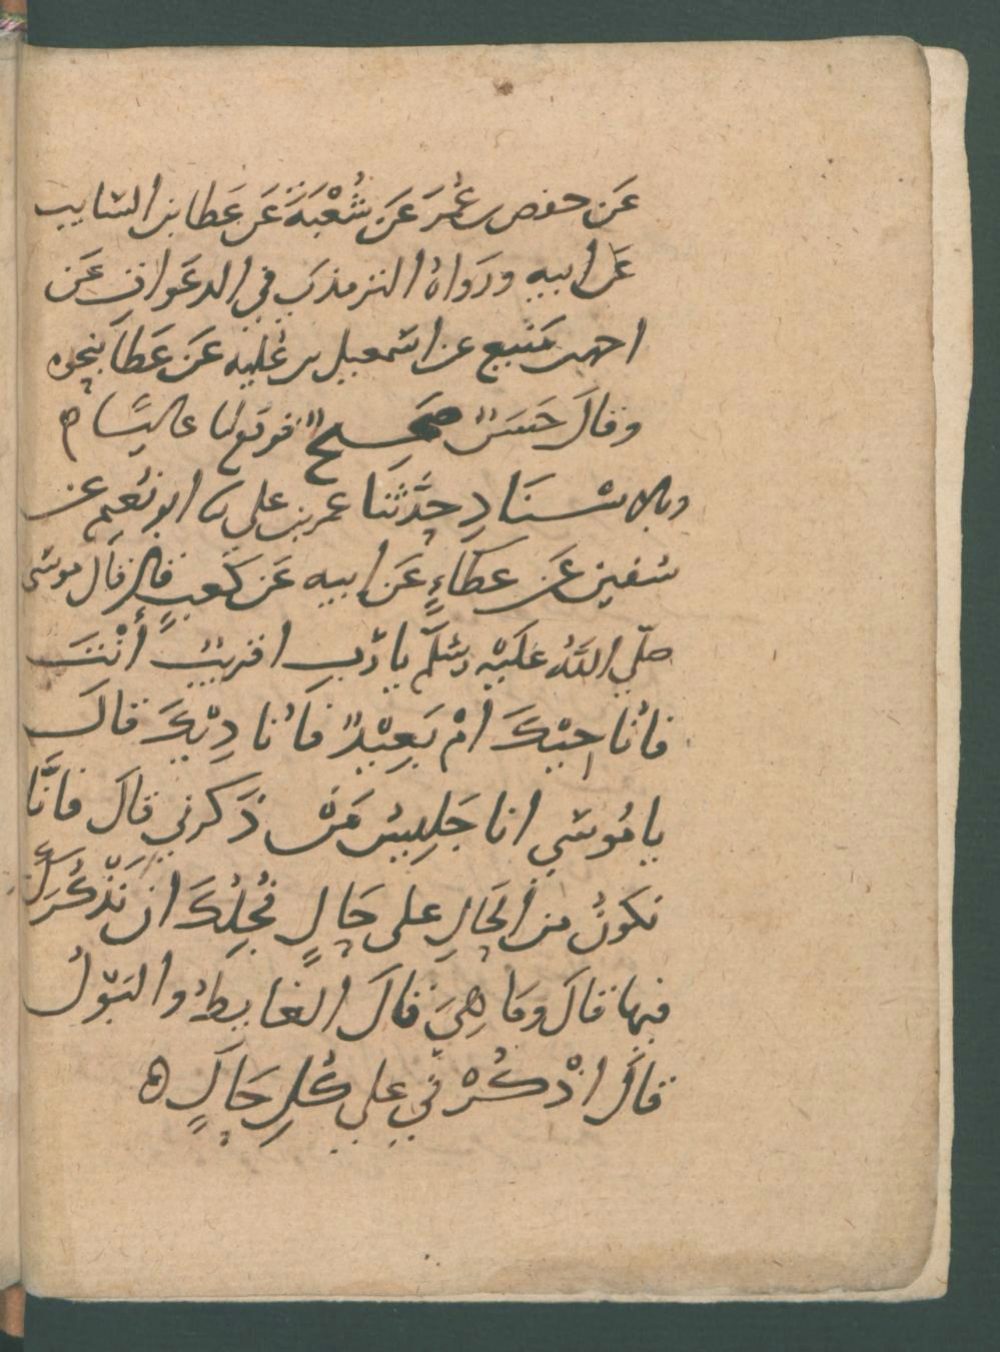 عَن حفص بن عُمَرَ عَن شُعْبَةَ عَن عَطا بن السَّايب
عَن ابيه ورَوَاهُ الترمذي في الدعَوات عَن
احمد بن مَنيع عن اسمعيل بن عُليه عَن عَطا بنحوه
وقالَ حَسَنٌ صَحِيحٌ فوقع لنا عاليًا ه
وبالاسْنَادِ حَدَّثَنا عمر بن علي ثنا ابو نُعيم عن
سُفين عَن عَطَاءٍ عَن ابيه عَن كَعبٍ قال قال موسَى
صلّى اللهُ عَلَيْه وسَلَّم يا رَبِّ اقريبٌ أنْتَ
فاُناجيْكَ أمْ بَعِيْدٌ فاُناديْكَ قالَ
يا مُوسَى انا جَلِيسُ مَنْ ذَكرني قالَ فانَّا
نكونُ من الحَالِ على حَالٍ نُجِلُّكَ ان نَذْكُرَكَ
فيها قالَ ومَا هِيَ قالَ الغايطُ والبَوْلُ
قالَ اذْكُرْني على كُلِ حَالٍ ه